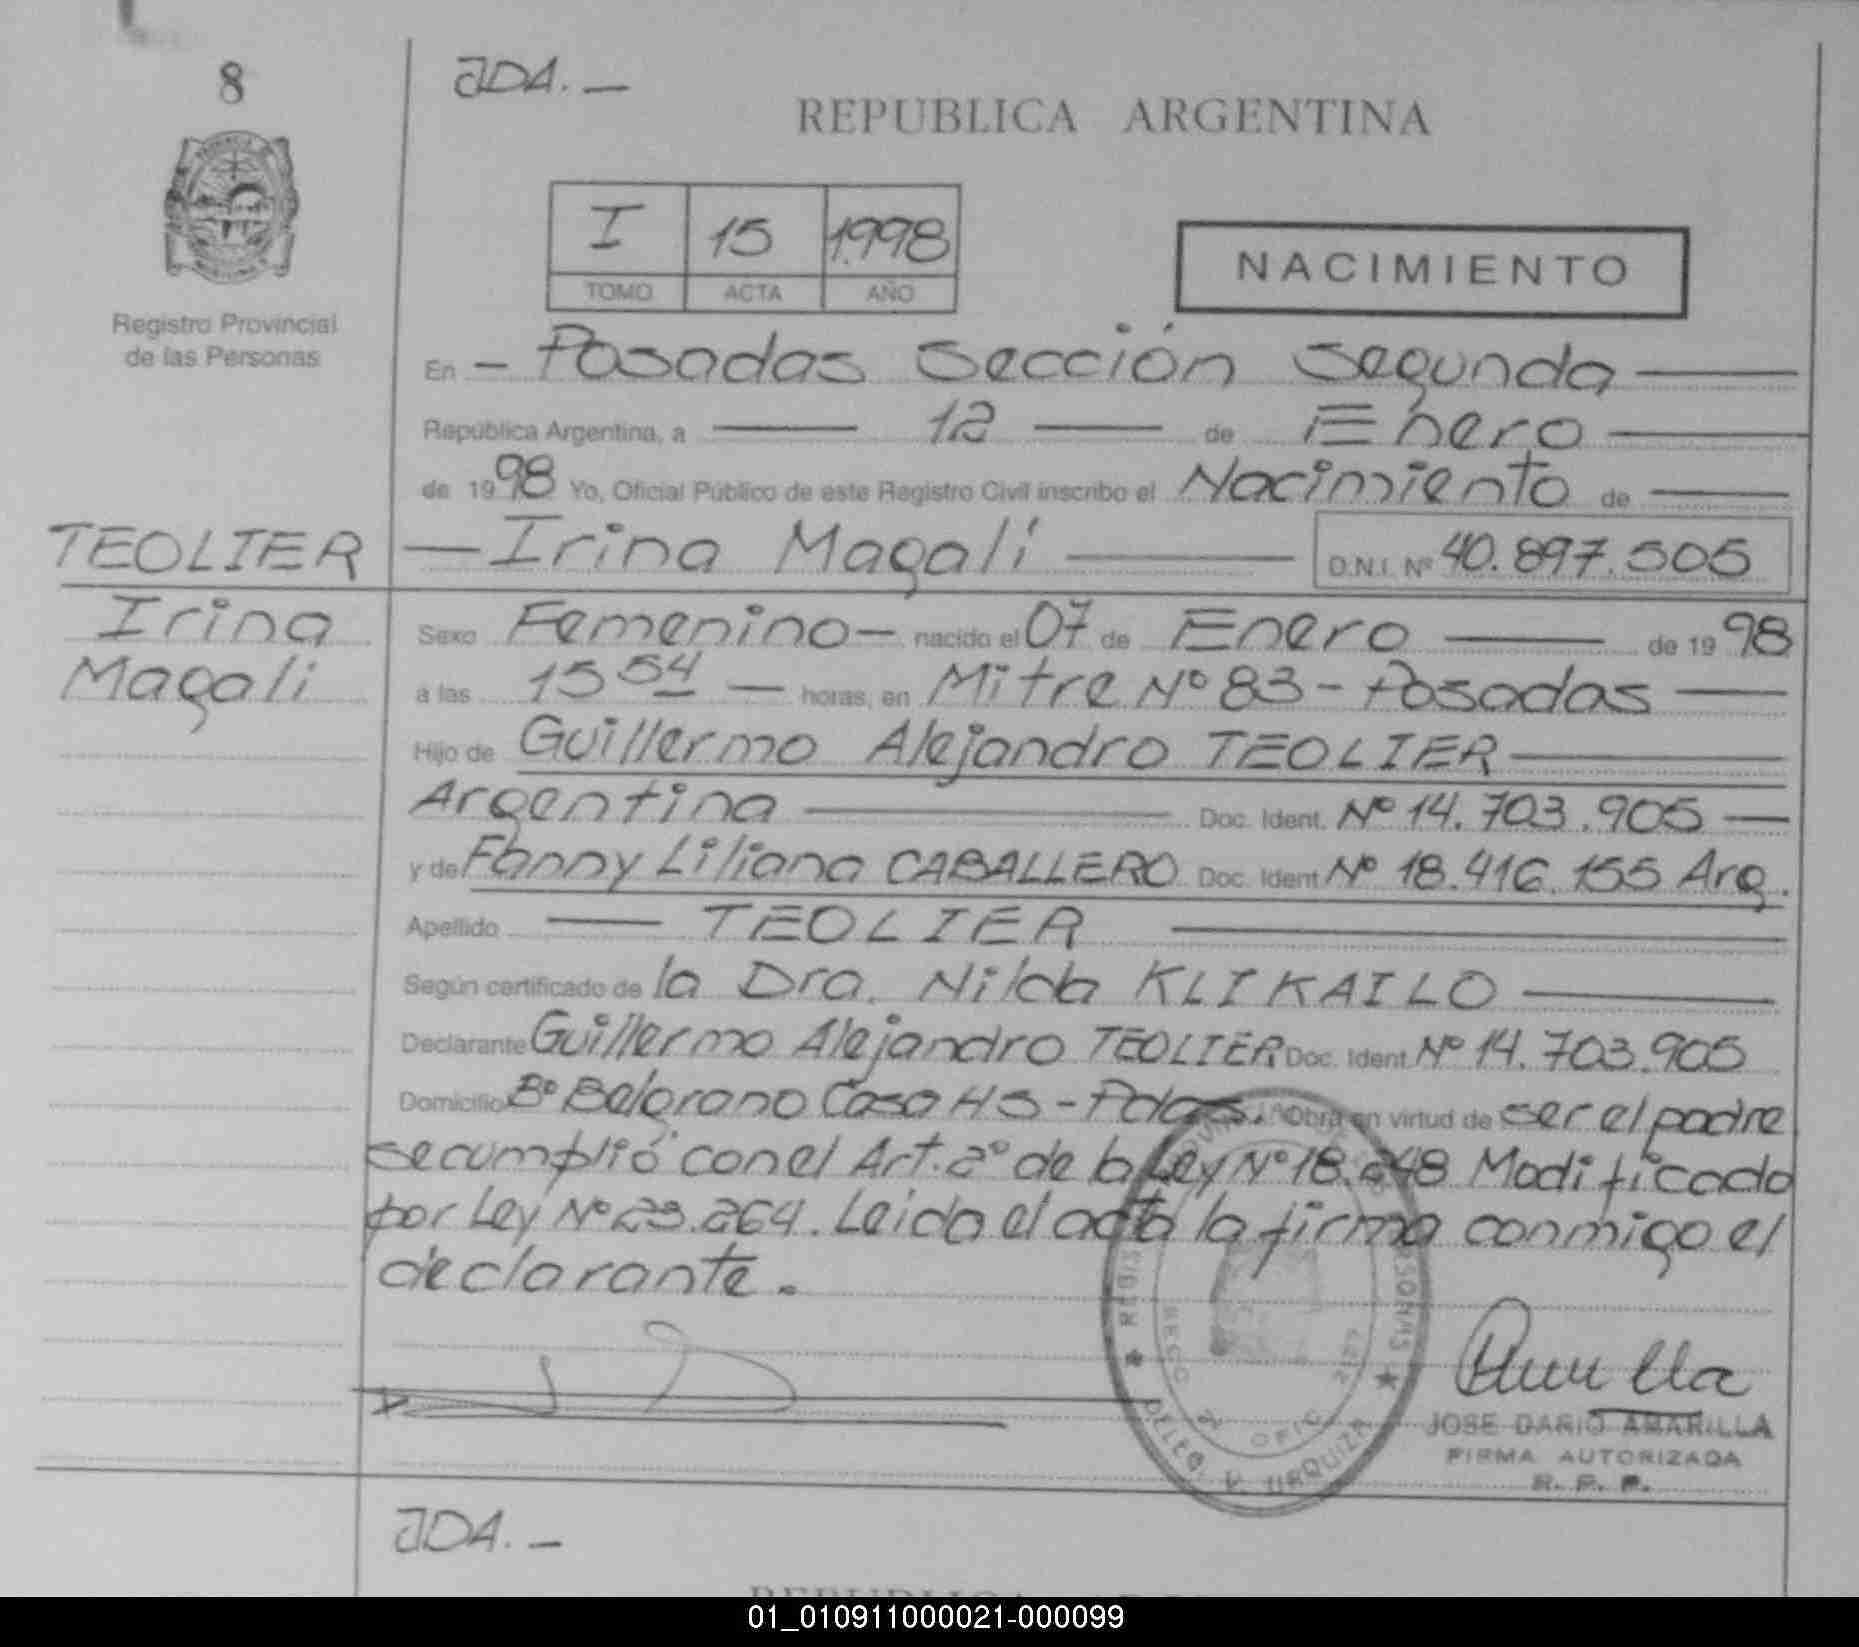 8
JDA. —
REPUBLICA ARGENTINA
I 15 1.998
TOMO ACTA AÑO
NACIMIENTO
Registro Provincial
de las Personas
En — Posadas Sección Segunda —
República Argentina, a — 12 — de Enero —
de 1998 Yo, Oficial Público de este Registro Civil inscribo el Nacimiento de —
TEOLIER — Irina Magalí — D.N.I. Nº 40.897.505
Irina
Magalí
Sexo Femenino — nacido el 07 de Enero — de 1998
a las 15 54 — horas, en Mitre Nº 83 - Posadas —
Hijo de Guillermo Alejandro TEOLIER —
Argentina — Doc. Ident. Nº 14.703.905 —
y de Fanny Liliana CABALLERO Doc. Ident Nº 18.416.155 Arg.
Apellido — TEOLIER —
Según certificado de la Dra. Nilda KLIKAILO —
Declarante Guillermo Alejandro TEOLIER Doc. Ident. Nº 14.703.905
Domicilio Bº Belgrano Casa - Pdas. Obra en virtud de ser el padre
se cumplió con el Art. 2º de la Ley Nº 18.248 Modificado
por Ley Nº 23.264. Leida el acta la firma conmigo el
declarante.
JOSE DARIO AMARILLA
FIRMA AUTORIZADA
R. P. P.
JDA. —
01_010911000021-000099